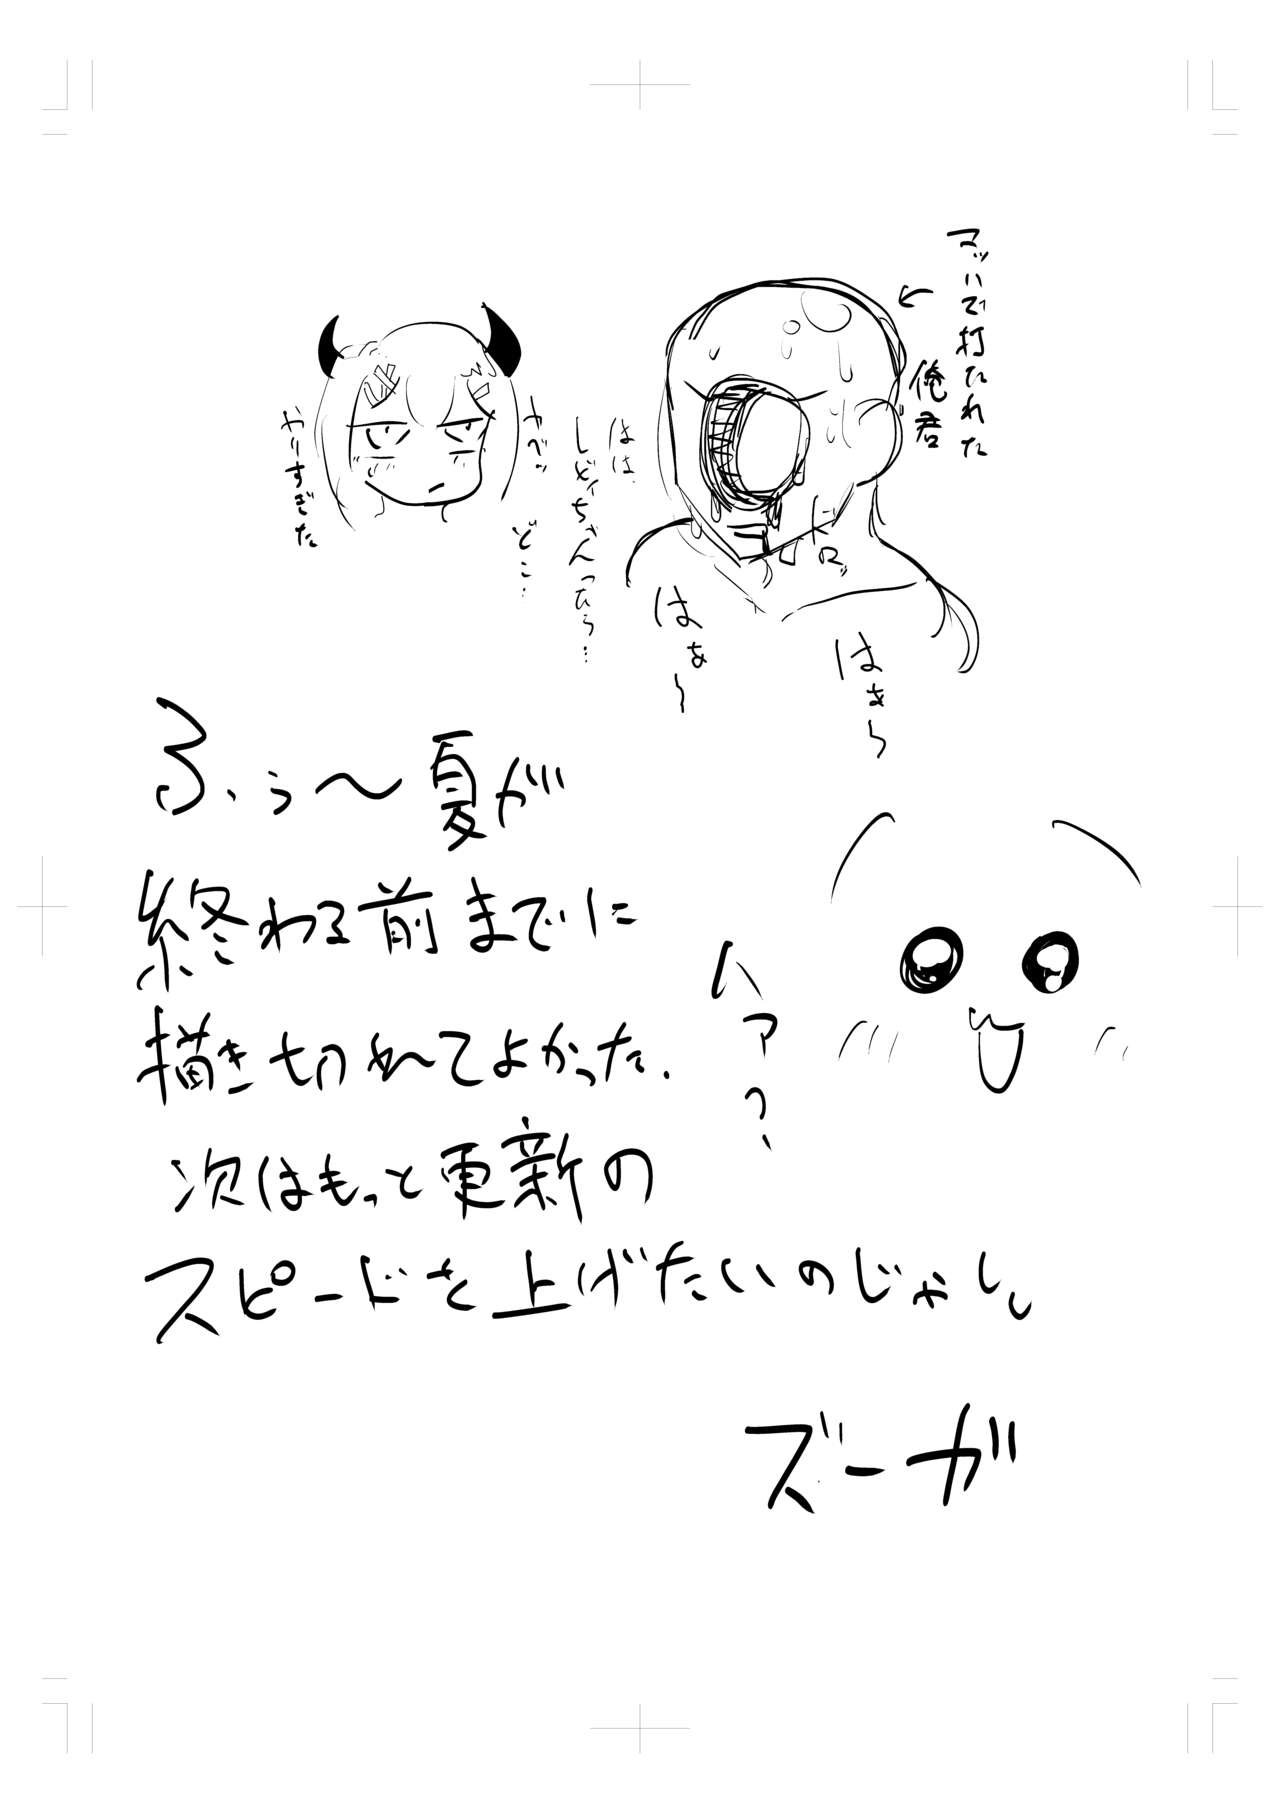 マッハで打たれた
俺君
はは、
しどいちゃんったら…
ドロッ
はぁ〜
はぁ〜
ヤベッ
どこ…
やりすぎた
ふぅ〜夏が
終わる前までに
描き切れてよかった.
次はもっと更新の
スピードを上げたいのじゃし。
ハァっ、
ズーガ